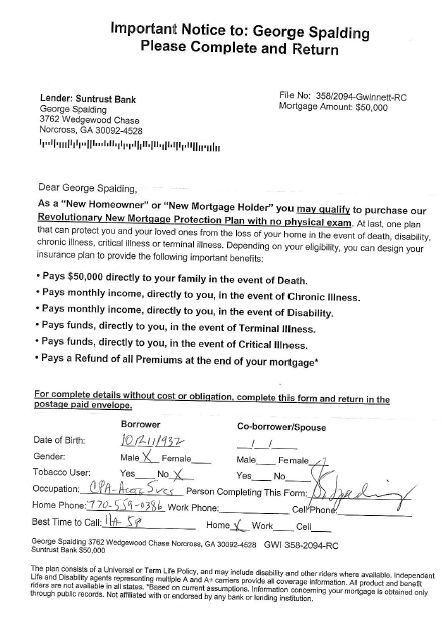 Important Notice to: George Spalding
Please Complete and Return
Lender: Suntrust Bank
George Spalding
3762 Wedgewood Chase
Norcross, GA 30092-4528
File No: 358/2094-Gwinnett-RC
Mortgage Amount: $50,000
Dear George Spalding,
As a "New Homeowner" or "New Mortgage Holder" you may qualify to purchase our
Revolutionary New Mortgage Protection Plan with no physical exam. At last, one plan
that can protect you and your loved ones from the loss of your home in the event of death, disability,
chronic illness, critical illness or terminal illness. Depending on your eligibility, you can design your
insurance plan to provide the following important benefits:
• Pays $50,000 directly to your family in the event of Death.
• Pays monthly income, directly to you, in the event of Chronic Illness.
• Pays monthly income, directly to you, in the event of Disability.
• Pays funds, directly to you, in the event of Terminal Illness.
• Pays funds, directly to you, in the event of Critical Illness.
• Pays a Refund of all Premiums at the end of your mortgage*
For complete details without cost or obligation, complete this form and return in the
postage paid envelope.
Borrower Co-borrower/Spouse
Date of Birth: / /
Gender: Male X Female Male Female
Tobacco User: Yes No X Yes No
Occupation: CPA- Person Completing This Form:
Home Phone: 770-559-0386 Work Phone: Cell Phone:
Best Time to Call: Home X Work Cell
George Spalding 3762 Wedgewood Chase Norcross, GA 30092-4528 GWI 358-2094-RC
Suntrust Bank $50,000
The plan consists of a Universal or Term Life Policy, and may include disability and other riders where available. Independent
Life and Disability agents representing multiple A and A+ carriers provide all coverage information. All product and benefit
riders are not available in all states. *Based on current assumptions. Information concerning your mortgage is obtained only
through public records. Not affiliated with or endorsed by any bank or lending institution.